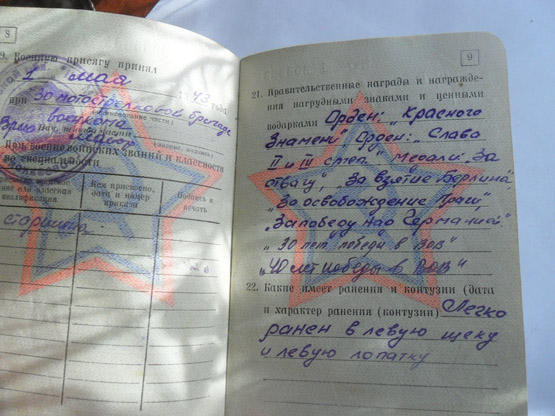 8
9. Военную присягу принял
1 мая 43 года
при 30 мотострелковой бригаде
военкома
майор
Присвоение воинских званий и классности
по специальности
Кем присвоено,
дата и номер
приказа
Подпись и
печать
старшина
9
21. Правительственные награды и награжде-
ния нагрудными знаками и ценными
подарками Орден: „Красного
Знамени" Орден: „Слава
II и III степ." медали „За
отвагу", „За взятие Берлина",
„За освобождение Праги"
„За победу над Германией".
„30 лет победы в ВОВ"
„40 лет победы в ВОВ"
22. Какие имеет ранения и контузии (дата
и характер ранения (контузии) Легко
ранен в левую щеку
и левую лопатку